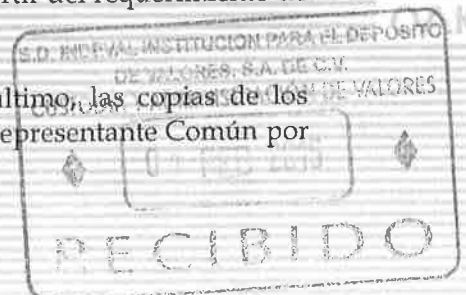 tir del requerimiento
S.D. INDEVAL INSTITUCION PARA EL DEPOSITO
DE VALORES, S.A. DE C.V.
último, las copias de los
DE VALORES
epresentante Común por
RECIBIDO